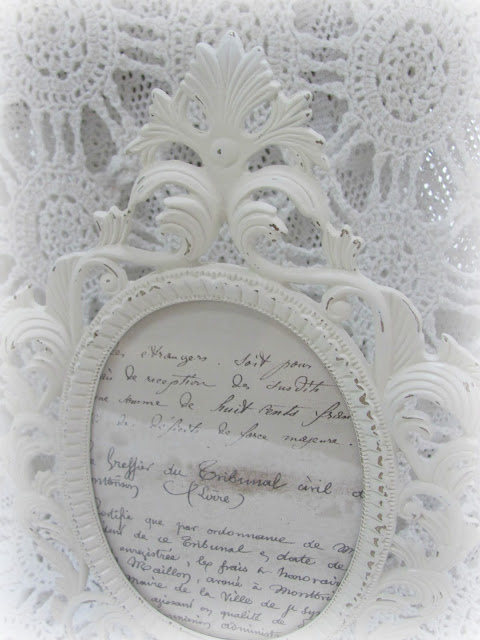 es étrangers. Soit pour
de reception des susdits
ne somme de huit cents fran
de déficit de force majeure.
Greffier du Tribunal civil d
(Isère)
rtifie que par ordonnance de M
ent de ce Tribunal en date de
enregistrée, les frais & honorair
Maillon, avoué à
maire de la Ville de St Sy
agissant en qualité de
administ